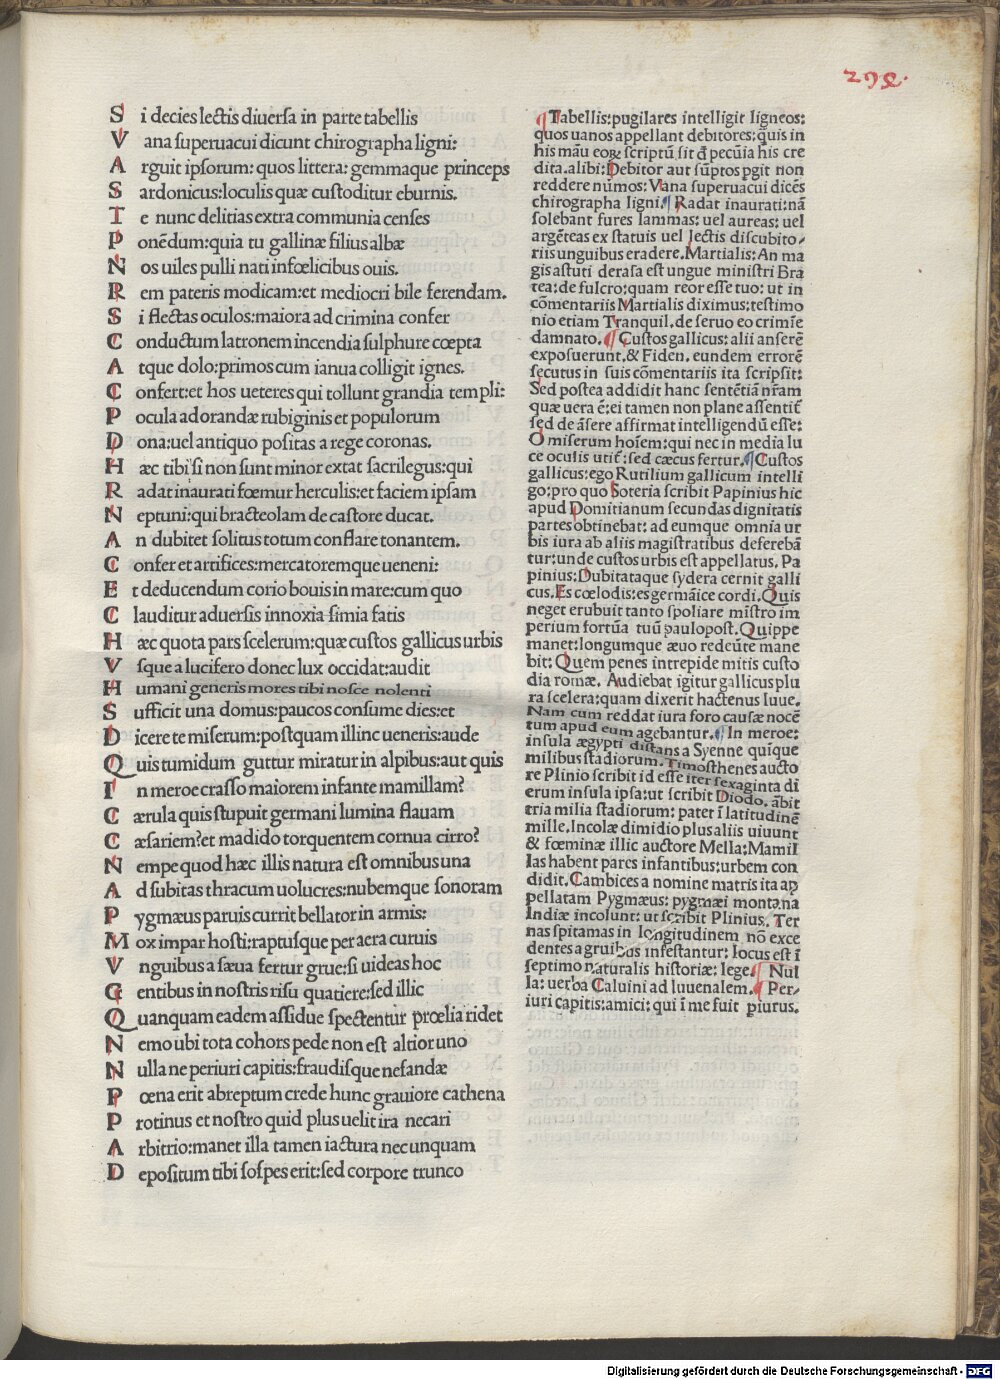 292.
S i decies lectis diuersa in parte tabellis
V ana superuacui dicunt chirographa ligni:
A rguit ipsorum: quos littera: gemmaque princeps
S ardonicus: loculis quæ custoditur eburnis.
T e nunc delitias extra communia censes
P onēdum: quia tu gallinæ filius albæ
N os uiles pulli nati infœlicibus ouis.
R em pateris modicam: et mediocri bile ferendam.
S i flectas oculos: maiora ad crimina confer
C onductum latronem incendia sulphure cœpta
A tque dolo: primos cum ianua colligit ignes.
C onfert: et hos ueteres qui tollunt grandia templi:
P ocula adorandæ rubiginis et populorum
D ona: uel antiquo positas a rege coronas.
H æc tibi si non sunt minor extat sacrilegus: qui
R adat inaurati fœmur herculis: et faciem ipsam
N eptuni: qui bracteolam de castore ducat.
A n dubitet solitus totum conflare tonantem.
C onfer et artifices: mercatoremque ueneni:
E t deducendum corio bouis in mare: cum quo
C lauditur aduersis innoxia simia fatis
H æc quota pars scelerum: quæ custos gallicus urbis
V sque a lucifero donec lux occidat: audit
H umani generis mores tibi nosce nolenti
S ufficit una domus: paucos consume dies: et
D icere te miserum: postquam illinc ueneris: aude
Q uis tumidum guttur miratur in alpibus: aut quis
I n meroe crasso maiorem infante mamillam?
C ærula quis stupuit germani lumina flauam
C æsariem? et madido torquentem cornua cirro?
N empe quod hæc illis natura est omnibus una
A d subitas thracum uolucres: nubemque sonoram
P ygmæus paruis currit bellator in armis:
M ox impar hosti: raptusque per aera curuis
V nguibus a sæua fertur grue: si uideas hoc
G entibus in nostris risu quatiere: sed illic
Q uanquam eadem assidue spectentur prœlia ridet
N emo ubi tota cohors pede non est altior uno
N ulla ne periuri capitis: fraudisque nefandæ
P œna erit abreptum crede hunc grauiore cathena
P rotinus et nostro quid plus uelit ira necari
A rbitrio: manet illa tamen iactura nec unquam
D epositum tibi sospes erit: sed corpore trunco
¶Tabellis: pugilares intelligit ligneos:
quos uanos appellant debitores: quis in
his māu eoꝝ scriptū sit ꝗ pecūia his cre
dita. alibi: Debitor aut sūptos pgit non
reddere nūmos: Vana superuacui dicēs
chirographa ligni. ¶ Radat inaurati: nā
solebant fures lammas: uel aureas: uel
argēteas ex statuis uel lectis discubito/
riis unguibus eradere. Martialis: An ma
gis astuti derasa est ungue ministri Bra
tea: de fulcro: quam reor esse tuo: ut in
cōmentariis Martialis diximus: testimo
nio etiam Tranquil. de seruo eo crimīe
damnato. ¶ Custos gallicus: alii anserē
exposuerunt. & Fiden. eundem errorē
secutus in suis cōmentariis ita scripsit:
Sed postea addidit hanc sentētiā nr̄am
quæ uera ē: ei tamen non plane assentit̄
sed de āsere affirmat intelligendū esse:
O miserum hoīem: qui nec in media lu
ce oculis utit̄: sed cæcus fertur. ¶ Custos
gallicus: ego Rutilium gallicum intelli
go: pro quo Soteria scribit Papinius hic
apud Domitianum secundas dignitatis
partes obtinebat: ad eumque omnia ur
bis iura ab aliis magistratibus deferebā
tur: unde custos urbis est appellatus. Pa
pinius: Dubitataque sydera cernit galli
cus. Es cœlo dis: es germāice cordi. Quis
neget erubuit tanto spoliare mīstro im
perium fortūa tuū paulopost. Quippe
manet: longumque æuo redeūte mane
bit: Quem penes intrepide mitis custo
dia romæ. Audiebat igitur gallicus plu
ra scelera: quam dixerit hactenus Iuue.
Nam cum reddat iura foro causæ nocē
tum apud eum agebantur. ¶ In meroe:
insula ægypti distans a Syenne quique
milibus stadiorum. Timosthenes aucto
re Plinio scribit id esse iter sexaginta di
erum insula ipsa: ut scribit Diodo. ābit
tria milia stadiorum: pater ī latitudinē
mille. Incolæ dimidio plus aliis uiuunt
& fœminæ illic auctore Mella: Mamil
las habent pares infantibus: urbem con
didit. Cambices a nomine matris ita ap
pellatam Pygmæus: pygmæi montana
Indiæ incolunt: ut scribit Plinius. Ter
nas spitamas in longitudinem nō exce
dentes a gruibus infestantur: locus est ī
septimo naturalis historiæ: lege. ¶ Nul
la: uerba Caluini ad Iuuenalem. ¶ Per/
iuri capitis: amici: qui ī me fuit piurus.
Digitalisierung gefördert durch die Deutsche Forschungsgemeinschaft - DFG